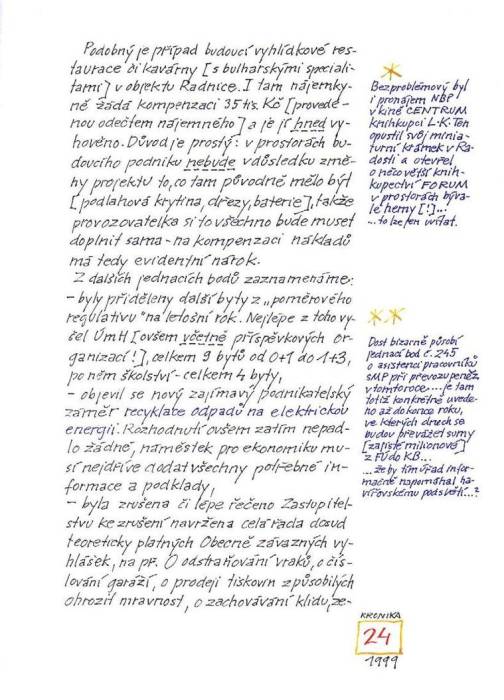 Podobný je případ budoucí vyhlídkové res-
taurace či kavárny [s bulharskými speciali-
tami] v objektu Radnice. I tam nájemky-
ně žádá kompenzaci 35 tis. Kč [provede-
nou odečtem nájemného] a je jí hned vy-
hověno. Důvod je prostý: v prostorách bu-
doucího podniku nebude v důsledku změ-
ny projektu to, co tam původně mělo být
[podlahová krytina, dřezy, baterie], takže
provozovatelka si to všechno bude muset
doplnit sama - na kompenzaci nákladů
má tedy evidentní nárok.
Z dalších jednacích bodů zaznamenáme:
- byly přiděleny další byty z „poměrového
regulativu" na letošní rok. Nejlépe z toho vy-
šel ÚMH [ovšem včetně příspěvkových or-
ganizací!], celkem 9 bytů od 0+1 do 1+3,
po něm školství - celkem 4 byty,
- objevil se nový zajímavý podnikatelský
záměr recyklate odpadů na elektrickou
energii. Rozhodnutí ovšem zatím nepad-
lo žádné, náměstek pro ekonomiku mu-
sí nejdříve dodat všechny potřebné in-
formace a podklady,
- byla zrušena či lépe řečeno Zastupitel-
stvu ke zrušení navržena celá řada dosud
teoreticky platných Obecně závazných vy-
hlášek, na př. O odstraňování vraků, o čís-
lování garáží, o prodeji tiskovin způsobilých
ohrozit mravnost, o zachovávání klidu, ze-
*
Bezproblémový byl
i pronájem NBP
v kině CENTRUM
knihkupci L. K. Ten
opustil svůj minia-
turní krámek v Ra-
dosti a otevřel
o něco větší knih-
kupectví FORUM
v prostorách býva-
lé herny [!]...
... to lze jen uvítat.
**
Dost bizarně působí
jednací bod č. 245
o asistenci pracovníků
SMP při převozu peněz,
v tomto roce... je tam
totiž konkrétně uvede-
no až do konce roku,
ve kterých dnech se
budou převážet sumy
[zajisté milionové]
z FÚ do KB...
... že by tím úřad infor-
mačně napomáhal ha-
vířovskému podsvětí...?
KRONIKA
24
1999